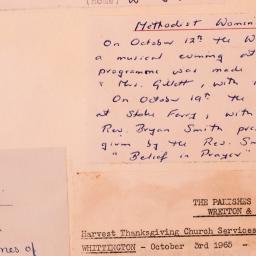 Methodist Women
On October 12th the W
a musical evening at
programme was made
Mrs. Gillett, with
On October 19th the
at Stoke Ferry, with
Rev. Bryan Smith pre
given by the Rev. Sm
" Belief in Prayer "
THE PARISHES
WRETTON &
Harvest Thanksgiving Church Services
WHITTINGTON - October 3rd 1965 -
nes of